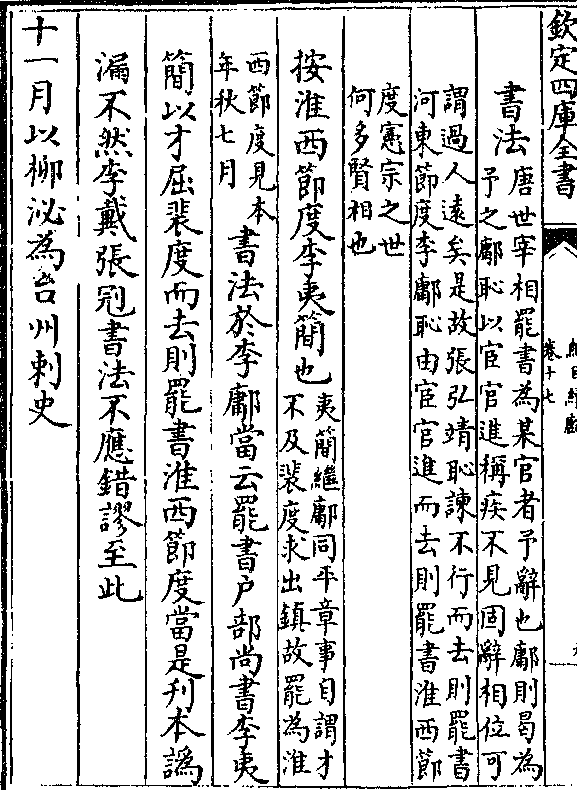 欽定四庫全書
卷十七
書法
唐世宰相罷書為某官者予辭也鄘則曷為
予之鄘恥以宦官進稱疾不見固辭相位可
謂過人遠矣是故張弘靖恥諫不行而去則罷書
河東節度李鄘恥由宦官進而去則罷書淮西節
度憲宗之世
何多賢相也
按淮西節度李夷簡也
夷簡繼鄘同平章事自謂才
不及裴度求出鎮故罷為淮
西節度見本
年秋七月
書法於李鄘當云罷書户部尚書李夷
簡以才屈裴度而去則罷書淮西節度當是刋本譌
漏不然李戴張冠書法不應錯謬至此
十一月以柳泌為台州刺史